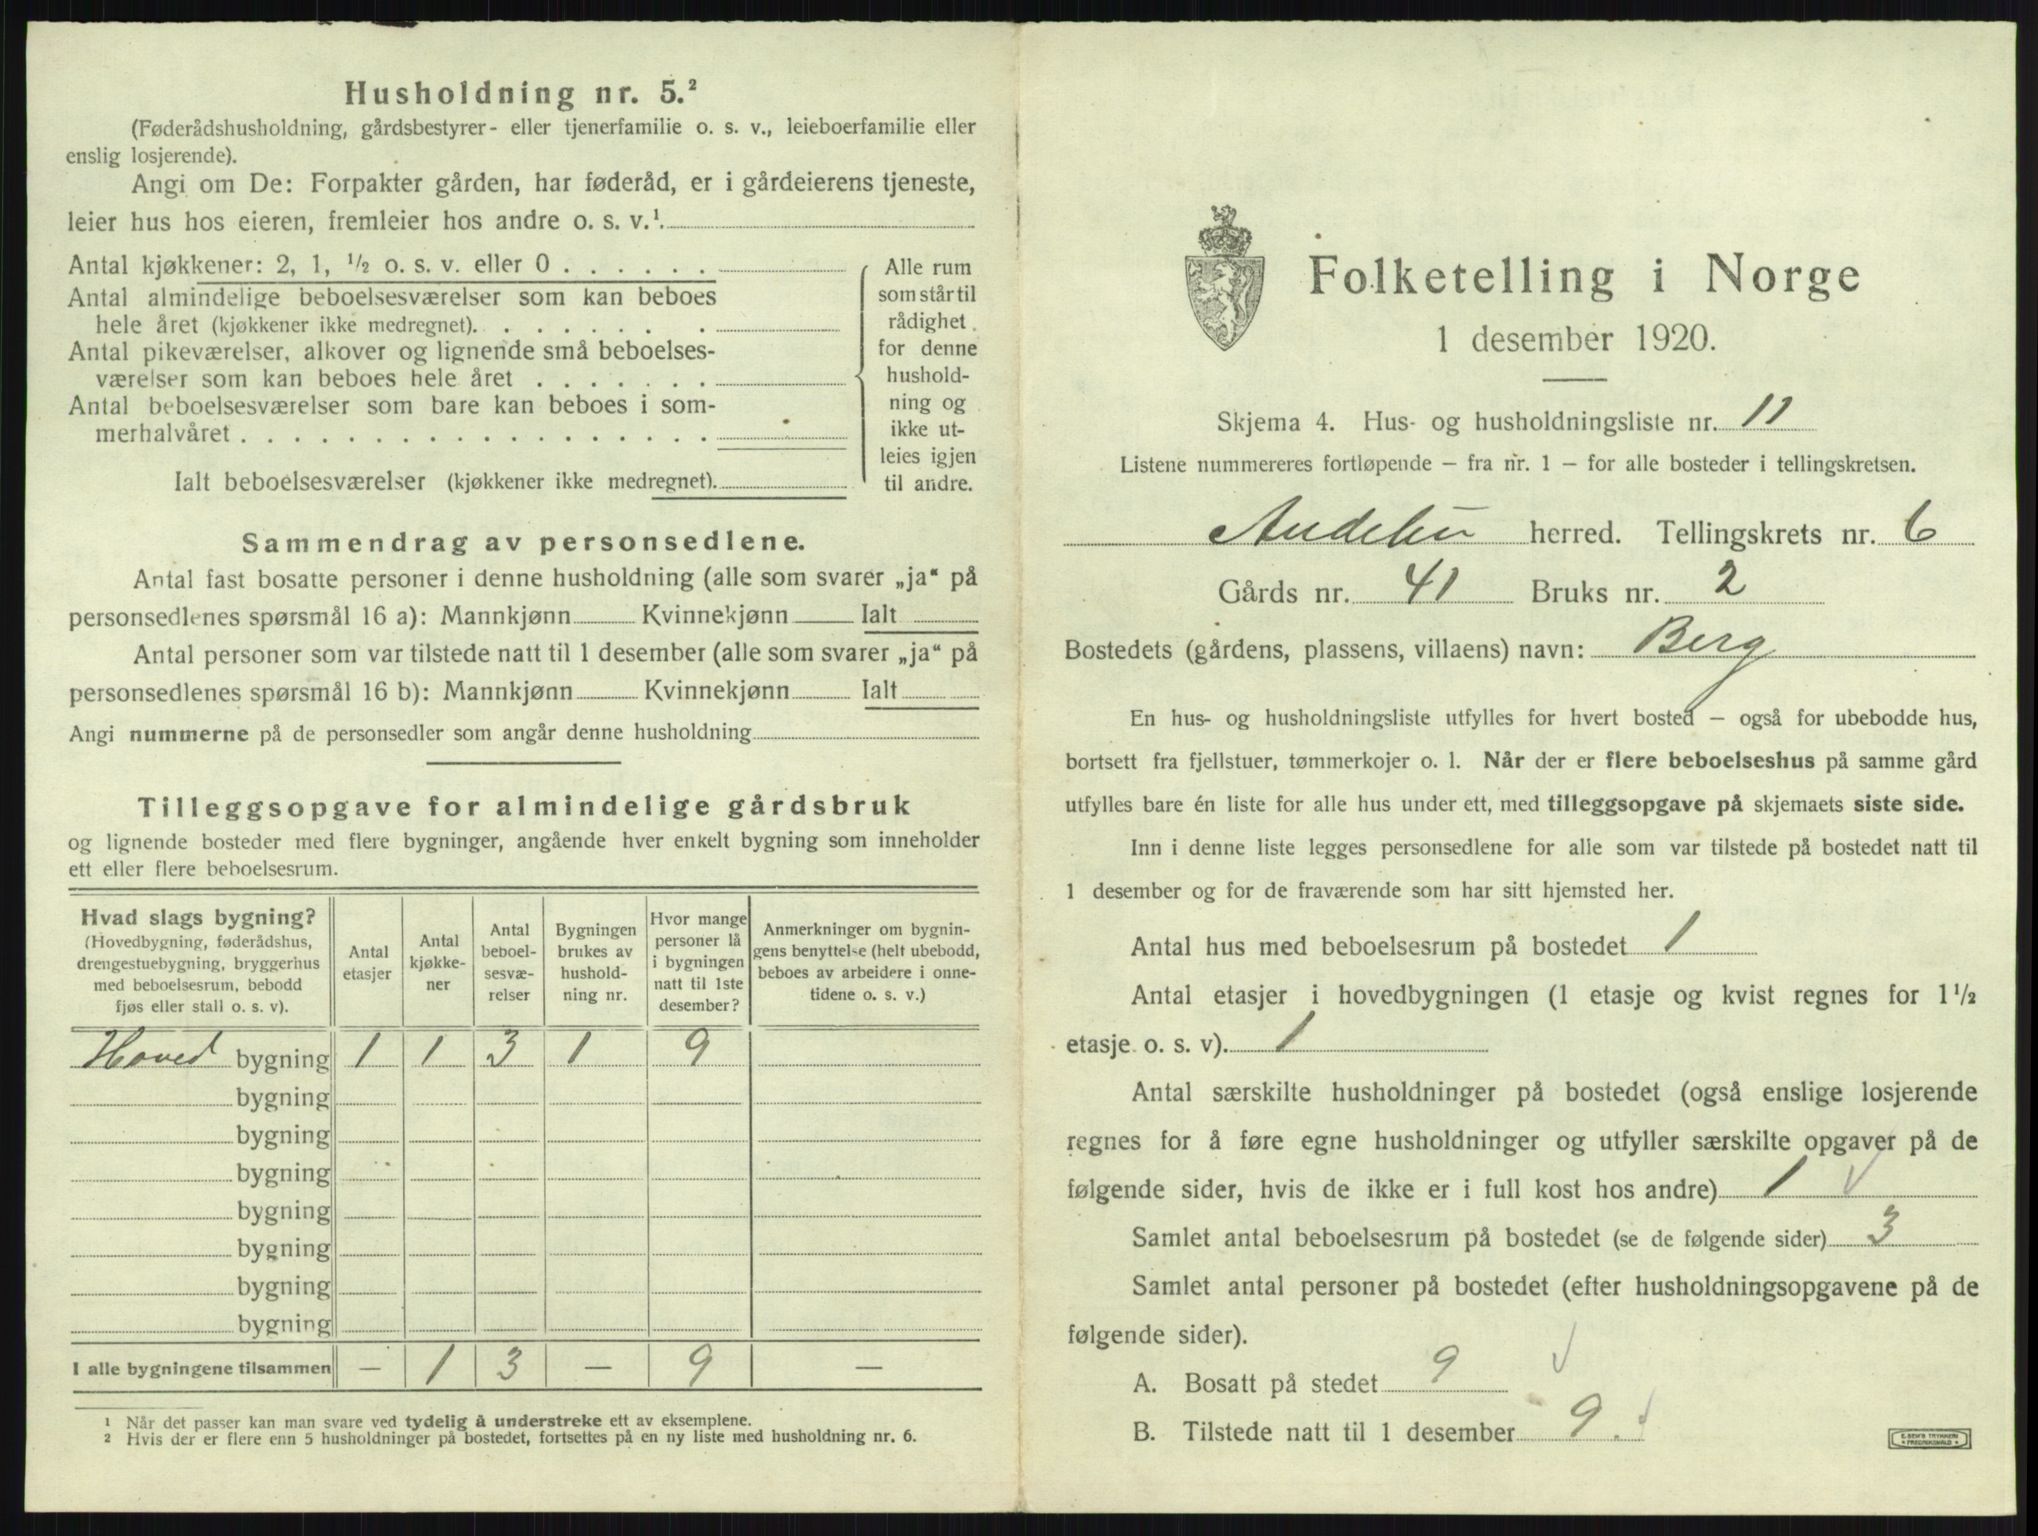 Husholdning nr. 5.²
(Føderådshusholdning, gårdsbestyrer- eller tjenerfamilie o. s. v., leieboerfamilie eller
enslig losjerende).
Angi om De: Forpakter gården, har føderåd, er i gårdeierens tjeneste,
leier hus hos eieren, fremleier hos andre o. s. v.¹
Antal kjøkkener: 2, 1, ½ o. s. v. eller 0 . . . . . .
Antal almindelige beboelsesværelser som kan beboes
hele året (kjøkkener ikke medregnet). . . . . . . .
Antal pikeværelser, alkover og lignende små beboelses-
værelser som kan beboes hele året . . . . . . .
Antal beboelsesværelser som bare kan beboes i som-
merhalvåret . . . . . . . . . . . . . . . . . .
Ialt beboelsesværelser (kjøkkener ikke medregnet).
Alle rum
som står til
rådighet
for denne
hushold-
ning og
ikke ut-
leies igjen
til andre.
Sammendrag av personsedlene.
Antal fast bosatte personer i denne husholdning (alle som svarer „ja“ på
personsedlenes spørsmål 16 a): Mannkjønn Kvinnekjønn Ialt
Antal personer som var tilstede natt til 1 desember (alle som svarer „ja“ på
personsedlenes spørsmål 16 b): Mannkjønn Kvinnekjønn Ialt
Angi nummerne på de personsedler som angår denne husholdning
Tilleggsopgave for almindelige gårdsbruk
og lignende bosteder med flere bygninger, angående hver enkelt bygning som inneholder
ett eller flere beboelsesrum.
Hvad slags bygning?
(Hovedbygning, føderådshus,
drengestuebygning, bryggerhus
med beboelsesrum, bebodd
fjøs eller stall o. s. v).
Antal
etasjer
Antal
kjøkke-
ner
Antal
beboel-
sesvæ-
relser
Bygningen
brukes av
hushold-
ning nr.
Hvor mange
personer lå
i bygningen
natt til 1ste
desember?
Anmerkninger om bygnin-
gens benyttelse (helt ubebodd,
beboes av arbeidere i onne-
tidene o. s. v.)
Hoved bygning 1 1 3 1 9
bygning
bygning
bygning
bygning
bygning
bygning
bygning
I alle bygningene tilsammen — 1 3 — 9 —
¹ Når det passer kan man svare ved tydelig å understreke ett av eksemplene.
² Hvis der er flere enn 5 husholdninger på bostedet, fortsettes på en ny liste med husholdning nr. 6.
Folketelling i Norge
1 desember 1920.
Skjema 4. Hus- og husholdningsliste nr. 11
Listene nummereres fortløpende — fra nr. 1 — for alle bosteder i tellingskretsen.
Andebu herred. Tellingskrets nr. 6
Gårds nr. 41 Bruks nr. 2
Bostedets (gårdens, plassens, villaens) navn: Berg
En hus- og husholdningsliste utfylles for hvert bosted — også for ubebodde hus,
bortsett fra fjellstuer, tømmerkojer o. l. Når der er flere beboelseshus på samme gård
utfylles bare én liste for alle hus under ett, med tilleggsopgave på skjemaets siste side.
Inn i denne liste legges personsedlene for alle som var tilstede på bostedet natt til
1 desember og for de fraværende som har sitt hjemsted her.
Antal hus med beboelsesrum på bostedet 1
Antal etasjer i hovedbygningen (1 etasje og kvist regnes for 1½
etasje o. s. v). 1
Antal særskilte husholdninger på bostedet (også enslige losjerende
regnes for å føre egne husholdninger og utfyller særskilte opgaver på de
følgende sider, hvis de ikke er i full kost hos andre) 1 ✓
Samlet antal beboelsesrum på bostedet (se de følgende sider) 3
Samlet antal personer på bostedet (efter husholdningsopgavene på de
følgende sider).
A. Bosatt på stedet 9 ✓
B. Tilstede natt til 1 desember 9. ✓